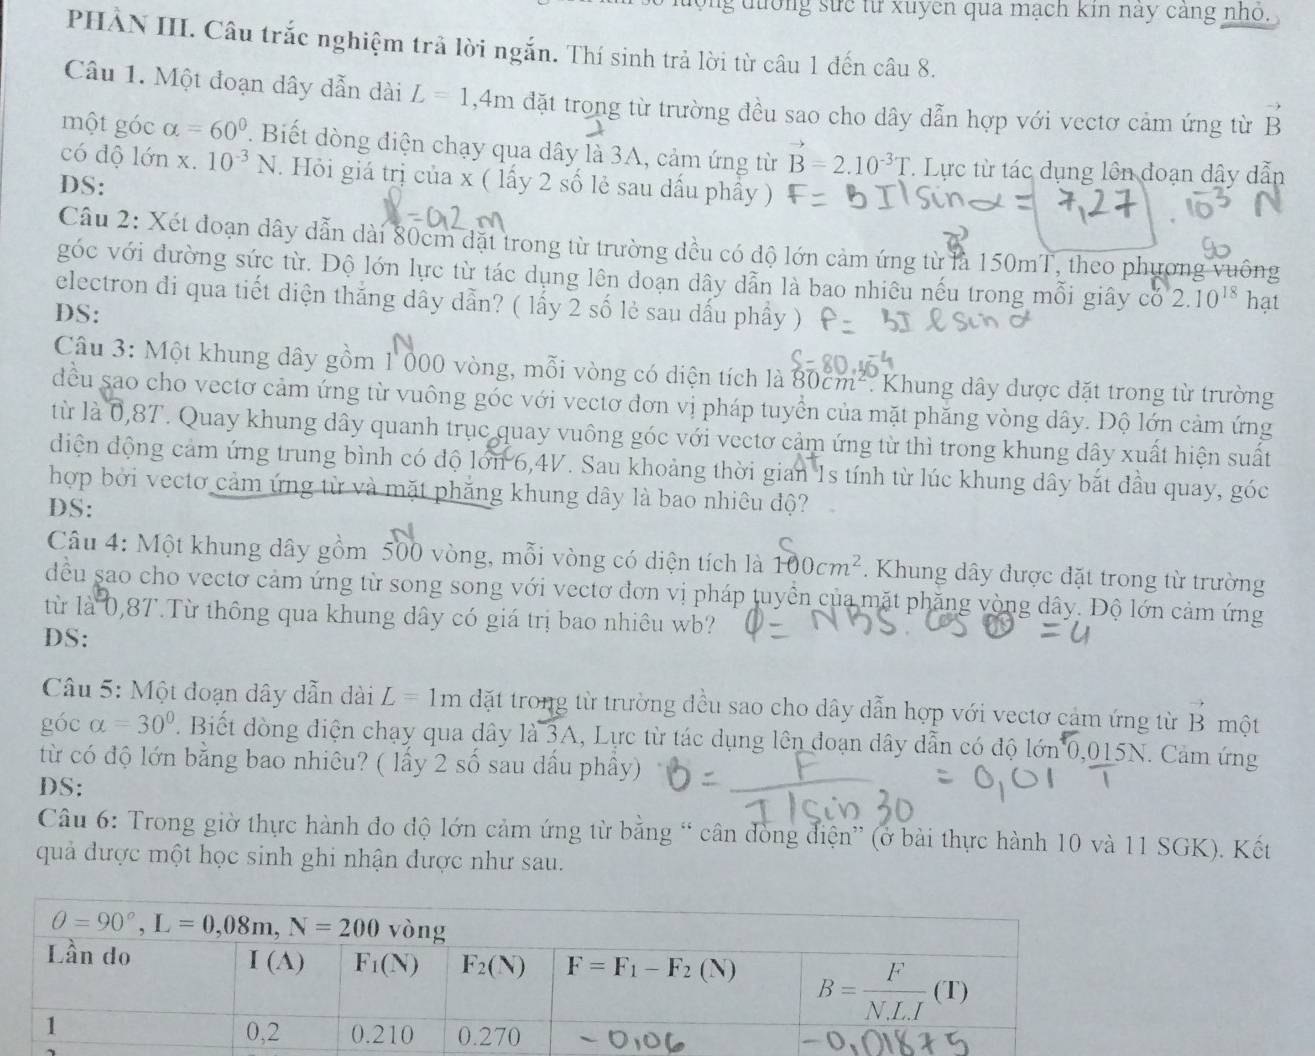 lượng đường sức từ xuyên qua mạch kín này càng nhỏ.
PHẦN III. Câu trắc nghiệm trả lời ngắn. Thí sinh trả lời từ câu 1 đến câu 8.
Câu 1. Một đoạn dây dẫn dài L = 1,4m đặt trong từ trường đều sao cho dây dẫn hợp với vectơ cảm ứng từ B⃗
một góc α = 60⁰. Biết dòng điện chạy qua dây là 3A, cảm ứng từ B⃗ = 2.10⁻³T. Lực từ tác dụng lên đoạn dây dẫn
I
có độ lớn x. 10⁻³ N. Hỏi giá trị của x ( lấy 2 số lẻ sau dấu phẩy ) F = BIl sin α = 7,27 . 10⁻³ N
DS:
Câu 2: Xét đoạn dây dẫn dài 80cm đặt trong từ trường đều có độ lớn cảm ứng từ là 150mT, theo phương vuông
90
góc với đường sức từ. Độ lớn lực từ tác dụng lên đoạn dây dẫn là bao nhiêu nếu trong mỗi giây có 2.10¹⁸ hạt
N
electron đi qua tiết diện thẳng dây dẫn? ( lấy 2 số lẻ sau dấu phẩy ) F = BI l sin α
DS:
N
S=80.10⁻⁴
Câu 3: Một khung dây gồm 1 000 vòng, mỗi vòng có diện tích là 80cm². Khung dây được đặt trong từ trường
đều sao cho vectơ cảm ứng từ vuông góc với vectơ đơn vị pháp tuyến của mặt phẳng vòng dây. Độ lớn cảm ứng
B
từ là 0,8T. Quay khung dây quanh trục quay vuông góc với vectơ cảm ứng từ thì trong khung dây xuất hiện suất
điện động cảm ứng trung bình có độ lớn 6,4V. Sau khoảng thời gian 1s tính từ lúc khung dây bắt đầu quay, góc
Δt
hợp bởi vectơ cảm ứng từ và mặt phẳng khung dây là bao nhiêu độ?
DS:
N
S
Câu 4: Một khung dây gồm 500 vòng, mỗi vòng có diện tích là 100cm². Khung dây được đặt trong từ trường
đều sao cho vectơ cảm ứng từ song song với vectơ đơn vị pháp tuyến của mặt phẳng vòng dây. Độ lớn cảm ứng
B
từ là 0,8T.Từ thông qua khung dây có giá trị bao nhiêu wb? Φ = NBS. cos = 4
DS:
Câu 5: Một đoạn dây dẫn dài L = 1m đặt trong từ trường đều sao cho dây dẫn hợp với vectơ cảm ứng từ B⃗ một
góc α = 30⁰. Biết dòng điện chạy qua dây là 3A, Lực từ tác dụng lên đoạn dây dẫn có độ lớn 0,015N. Cảm ứng
I
F
từ có độ lớn bằng bao nhiêu? ( lấy 2 số sau dấu phẩy) B = F / I l sin 30 = 0,01 T
DS:
Câu 6: Trong giờ thực hành đo độ lớn cảm ứng từ bằng “ cân dòng điện” (ở bài thực hành 10 và 11 SGK). Kết
quả được một học sinh ghi nhận được như sau.
θ = 90°, L = 0,08m, N = 200 vòng
Lần đo I (A) F₁(N) F₂(N) F = F₁ − F₂ (N) B = F / N.L.I (T)
1 0,2 0.210 0.270 − 0,06 − 0,01875